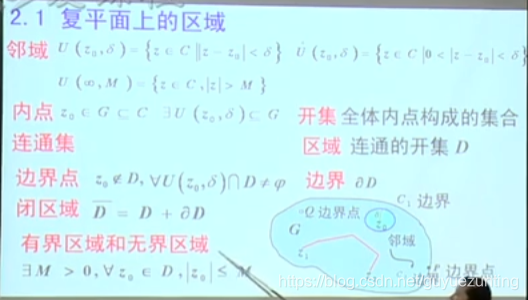 2.1 复平面上的区域
邻域 U(z₀,δ)={z∈C||z-z₀|<δ} U̇(z₀,δ)={z∈C|0<|z-z₀|<δ}
U(∞,M)={z∈C,|z|>M}
内点 z₀∈G⊂C ∃U(z₀,δ)⊂G 开集 全体内点构成的集合
连通集 区域 连通的开集 D
边界点 z₀∉D,∀U(z₀,δ)∩D≠φ 边界 ∂D
闭区域 D̅ = D + ∂D
C₁ 边界
Q 边界点
z₀
G
邻域
z₁
有界区域和无界区域
∃M > 0,∀z₀∈D,|z₀|≤M
边界点